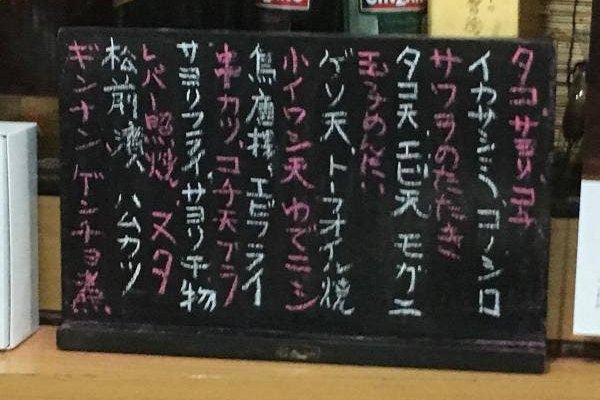 タコ、サヨリ、コチ
イカサシミ、コノシロ
サワラのたたき
タコ天、エビ天 モガニ
玉子めんたい
ゲソ天、トーフオイル焼
小イワシ天 ゆでニシ
鳥唐揚、エビフライ
串カツ、コチ天プラ
サヨリフライ、サヨリ干物
レバー照焼 ヌタ
松前漬、ハムカツ
ギンナン ゲンチョ煮